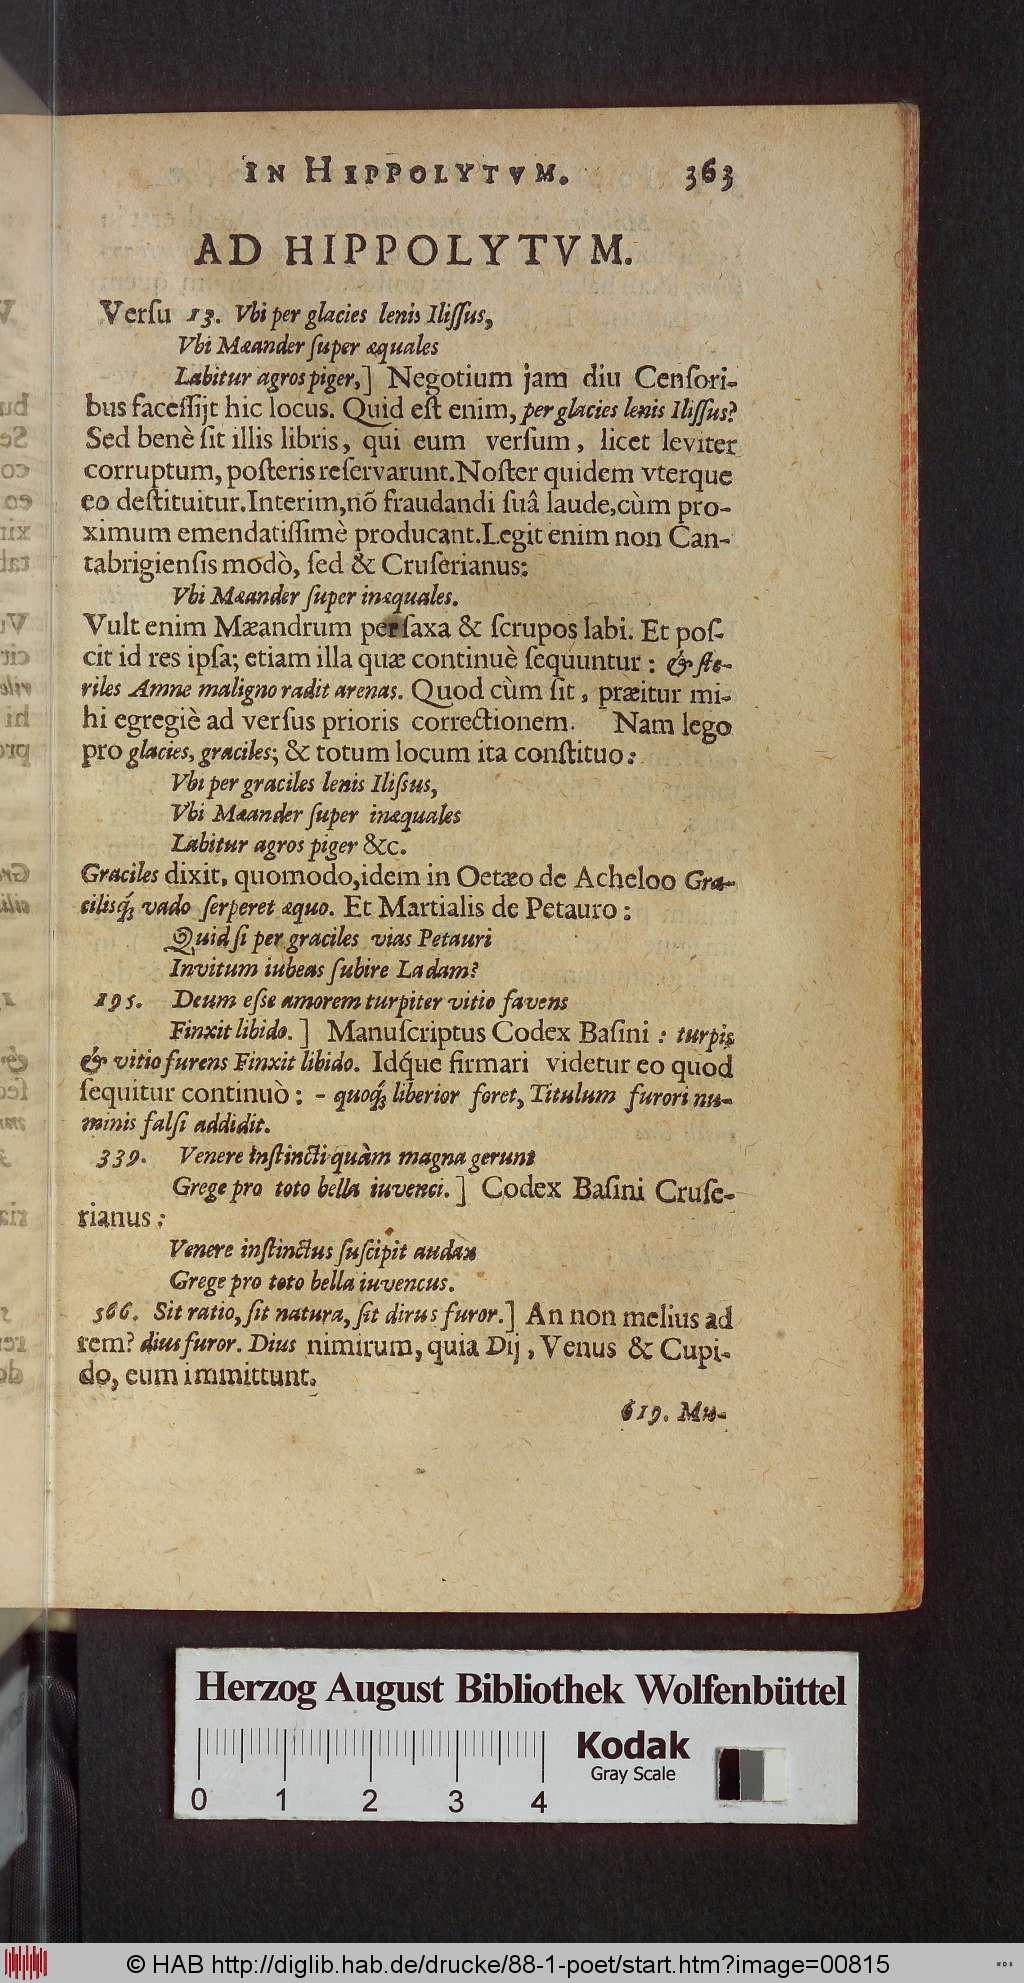 IN HIPPOLYTVM. 363
AD HIPPOLYTVM.
Verſu 13. Vbi per glacies lenis Iliſſus,
Vbi Mæander ſuper æquales
Labitur agros piger,] Negotium jam diu Cenſori-
bus faceſſijt hic locus. Quid eſt enim, per glacies lenis Iliſſus?
Sed benè ſit illis libris, qui eum verſum, licet leviter
corruptum, poſteris reſervarunt. Noſter quidem vterque
eo deſtituitur. Interim, nō fraudandi ſuâ laude, cùm pro-
ximum emendatiſſimè producant. Legit enim non Can-
tabrigienſis modò, ſed & Cruſerianus:
Vbi Mæander ſuper inæquales.
Vult enim Mæandrum per ſaxa & ſcrupos labi. Et poſ-
cit id res ipſa; etiam illa quæ continuè ſequuntur: & ſte-
riles Amne maligno radit arenas. Quod cùm ſit, præitur mi-
hi egregiè ad verſus prioris correctionem. Nam lego
pro glacies, graciles; & totum locum ita conſtituo:
Vbi per graciles lenis Iliſsus,
Vbi Mæander ſuper inæquales
Labitur agros piger &c.
Graciles dixit, quomodo, idem in Oetæo de Acheloo Gra-
cilisq́; vado ſerperet æquo. Et Martialis de Petauro:
Quid ſi per graciles vias Petauri
Invitum iubeas ſubire Ladam?
195. Deum eſse amorem turpiter vitio favens
Finxit libido.] Manuſcriptus Codex Baſini: turpis
& vitio furens Finxit libido. Idq́ue firmari videtur eo quod
ſequitur continuò: - quoq́; liberior foret, Titulum furori nu-
minis falſi addidit.
339. Venere inſtincti quàm magna gerunt
Grege pro toto bella iuvenci.] Codex Baſini Cruſe-
rianus:
Venere inſtinctus ſuſcipit audax
Grege pro toto bella iuvencus.
566. Sit ratio, ſit natura, ſit dirus furor.] An non melius ad
rem? dius furor. Dius nimirum, quia Dij, Venus & Cupi-
do, eum immittunt.
619. Mu-
Herzog August Bibliothek Wolfenbüttel
Kodak
Gray Scale
0 1 2 3 4
© HAB http://diglib.hab.de/drucke/88-1-poet/start.htm?image=00815